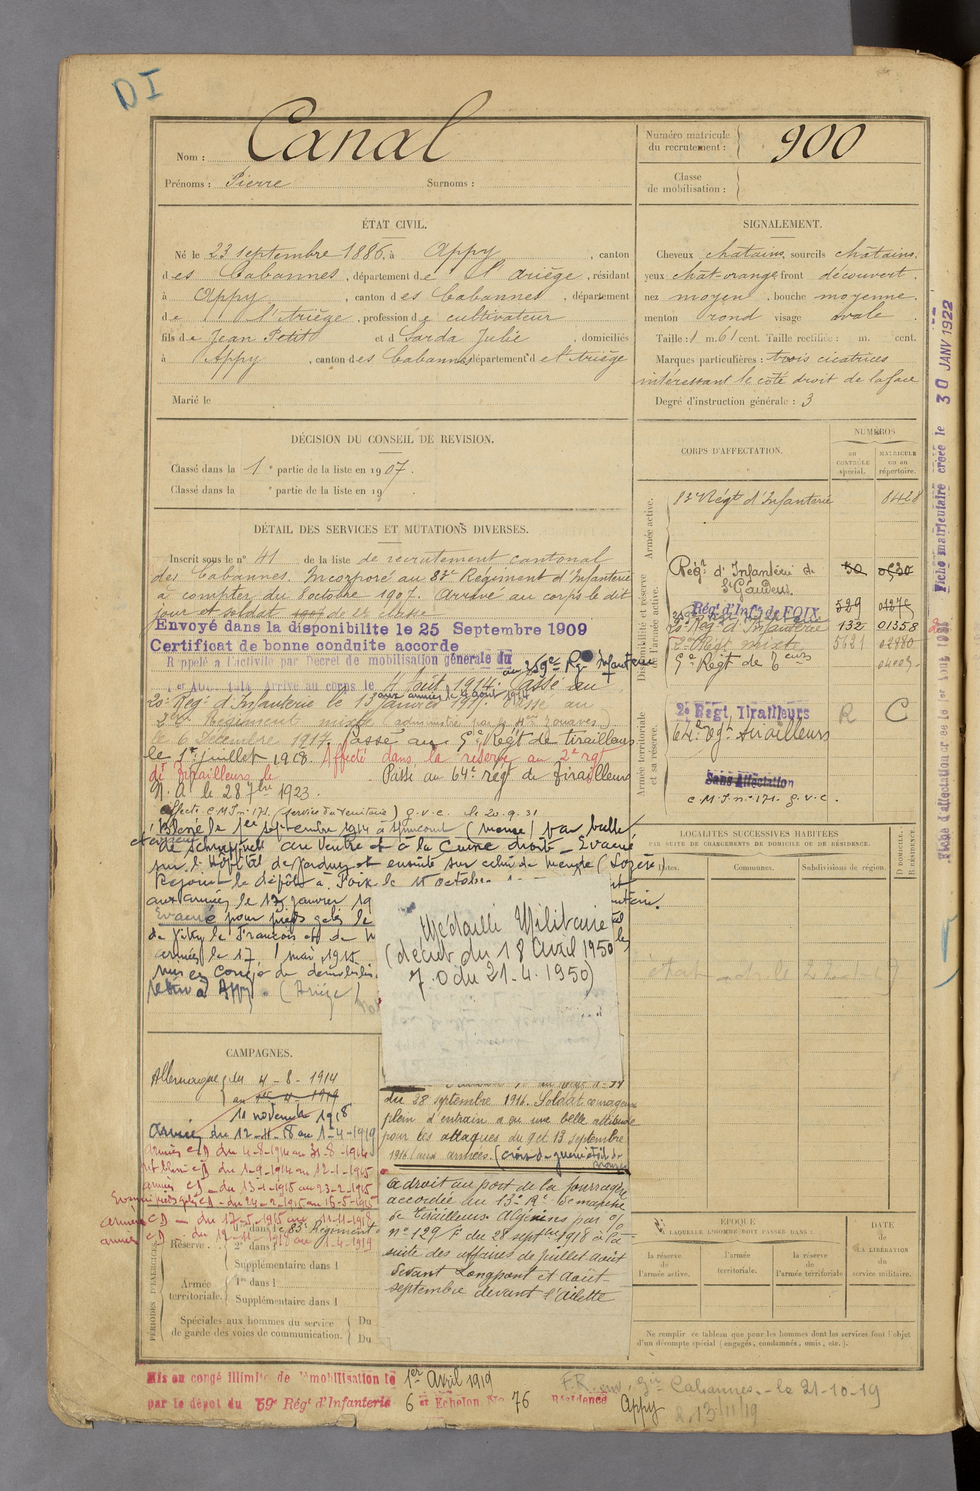 DI
Nom : Canal
Prénoms : Pierre Surnoms :
Numéro matricule du recrutement : 900
Classe de mobilisation :
ÉTAT CIVIL.
Né le 23 septembre 1886, à Appy, canton
des Cabannes, département de l'Ariège, résidant
à Appy, canton des Cabannes, département
de l'Ariège, profession de cultivateur
fils de Jean Petit et d Sarda Julie, domiciliés
à Appy, canton des Cabannes, département de l'Ariège
Marié le
SIGNALEMENT.
Cheveux châtains, sourcils châtains,
yeux chât-orange, front découvert,
nez moyen, bouche moyenne,
menton rond visage ovale.
Taille : 1 m. 61 cent. Taille rectifiée : m. cent.
Marques particulières : trois cicatrices
intéressant le côté droit de la face
Degré d'instruction générale : 3
DÉCISION DU CONSEIL DE REVISION.
Classé dans la 1e partie de la liste en 1907.
Classé dans la e partie de la liste en 19
DÉTAIL DES SERVICES ET MUTATIONS DIVERSES.
Inscrit sous le n° 41 de la liste de recrutement cantonal
des Cabannes. Incorporé au 83e Régiment d'Infanterie
à compter du 8 octobre 1907. Arrivé au corps le dit
jour et soldat de 2e classe
Envoyé dans la disponibilite le 25 Septembre 1909
Certificat de bonne conduite accorde
Rappelé a l'activite par Decret de mobilisation générale du
1er Aout 1914. Arrivé au corps le 4 Août 1914. Passé au
20e Régt d'Infanterie le 13 janvier 1915. Passé au
Régiment mixte (administré par le Zouaves)
le 6 Décembre 1917. Passé au 9e Régt de tirailleurs
le 1er juillet 1918. Affecté dans la réserve au 2e rgt
de Tirailleurs le Passé au 64e régt de Tirailleurs
N. A. le 28 7bre 1923.
Affecté C.M.I. n° 171. (service du territoire) G.V.C. le 20.9.31
Blessé le 1er septembre 1914 à (Meuse) par balle
de schrapnell au Ventre et à la Cuisse droite - Evacué
sur l'Hôpital de et ensuite sur celui de Mende (Lozère)
Rejoint le dépôt à Foix le 15 octobre
aux armées le 13 janvier 19
Evacué pour pieds gelés le
de Vitry le François et de
armées le 17 mai 1915
mis en congé de démobilis
retiré à Appy (Ariège)
Médaille Militaire
(décret du 18 Avril 1950
J.O du 21.4.1950)
du 28 septembre 1916. Soldat courageux
plein d'entrain a eu une belle attitude
pour les attaques du 9 et 13 septembre
1916 (aux armées. (Croix de guerre étoile de bronze)
a droit au port de la fourragère
accordée au 13e Bon de marche
de Tirailleurs Algériens par O/G
n° 129 F du 28 septbre 1918 à la
suite des affaires de juillet août
devant Longpont et août-
septembre devant l'Ailette
CORPS D'AFFECTATION.
NUMÉROS
au CONTRÔLE spécial.
MATRICULE ou au répertoire.
Armée active.
83e Régt d'Infanterie 8428
Disponibilité et réserve de l'armée active.
Régt d'Infanterie de St Gaudens 50
Régt d'Infie de FOIX 529
20e Régt d'Infanterie 132 01358
Régt mixte 5621 02980
9e Régt de Teurs
Armée territoriale et sa réserve.
2e Régt Tirailleurs R C
64e Régt tirailleurs
Sans Affectation
C.M.I. n° 171. G.V.C.
LOCALITÉS SUCCESSIVES HABITÉES
PAR SUITE DE CHANGEMENTS DE DOMICILE OU DE RÉSIDENCE.
Dates. Communes. Subdivisions de région.
D DOMICILE. R RÉSIDENCE
CAMPAGNES.
Allemagne du 4-8-1914
au
11 novembre 1918
Armée du 12-11-18 au 1-4-1919
armées CD du 4-8-1914 au 31-8-1914
int blessé CD du 1-9-1914 au 12-1-1915
armées CD du 13-1-1915 au 23-2-1915
Evacué pieds gelés CD du 24-2-1915 au 16-5-1915
armées CD du 17-5-1915 au 11-11-1918
armées C du 12-11-1918 au 1-4-1919
PÉRIODES D'EXERCICES
Réserve. 1re dans le 83e Régiment
2e dans l
Supplémentaire dans l
Armée territoriale. 1re dans l
Supplémentaire dans l
Spéciales aux hommes du service de garde des voies de communication. Du
Du
EPOQUE
À LAQUELLE L'HOMME DOIT PASSER DANS :
la réserve de l'armée active.
l'armée territoriale.
la réserve de l'armée territoriale
DATE de LA LIBÉRATION du service militaire.
Ne remplir ce tableau que pour les hommes dont les services font l'objet
d'un décompte spécial (engagés, condamnés, omis, etc.).
Mis en congé illimité de démobilisation le 1er Avril 1919
par le dépôt du 59e Régt d'Infanterie 6e Echelon No 76 Résidence Appy
Cabannes - le 21-10-19
13/11/19
Fiche matriculaire créée le 30 JANV 1922